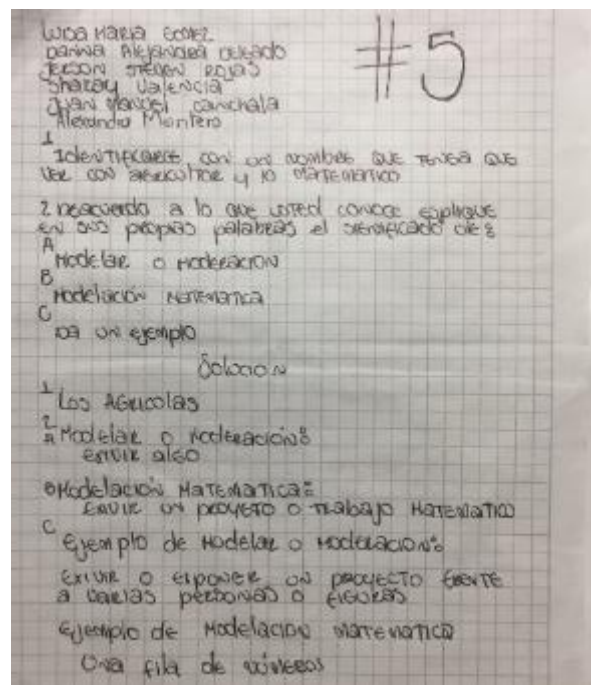 Luisa Maria Gomez
#5
Danna Alejandra Delgado
Jerson Steven Rojas
Sharay Valencia
Juan Manuel Canchala
Alexandra Montero
1
Identificarse con un nombre que tenga que
ver con agricultor y lo matematico
2 Deacuerdo a lo que usted conoce explique
en sus propias palabras el significado de:
A
Modelar o moderacion
B
Modelación matematica
C
Da un ejemplo
Solucion
1
Los Agricolas
2
A Modelar o moderacion:
exivir algo
B Modelación Matematica:
Exivir un proyecto o trabajo Matematico
C
Ejemplo de modelar o moderacion:
Exivir o exponer un proyecto frente
a varias personas o figuras
Ejemplo de modelacion matematica
Una fila de números